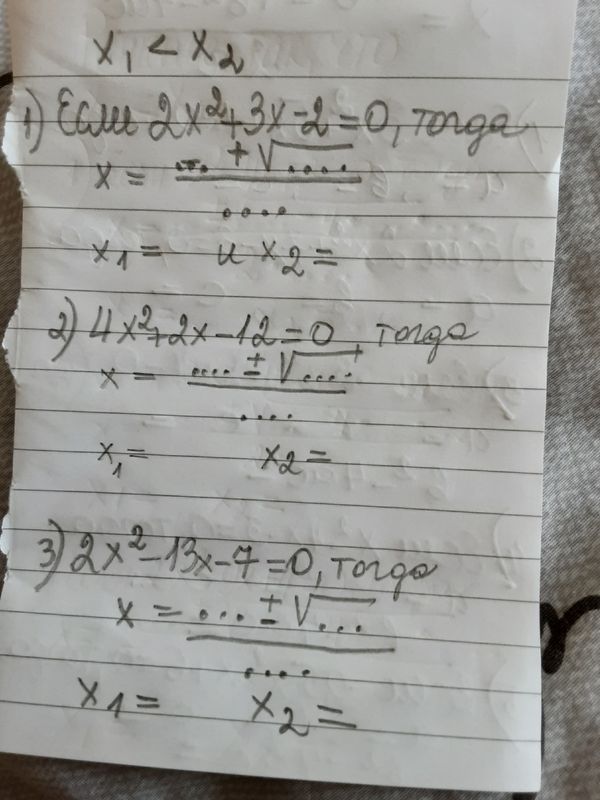 x₁ < x₂
1) Если 2x²+3x-2=0, тогда
x = .... ±√....
....
x₁ = и x₂ =
2) 4x²+2x-12=0, тогда
x = .... ±√....
....
x₁ = x₂ =
3) 2x²-13x-7=0, тогда
x = ... ±√...
....
x₁ = x₂ =